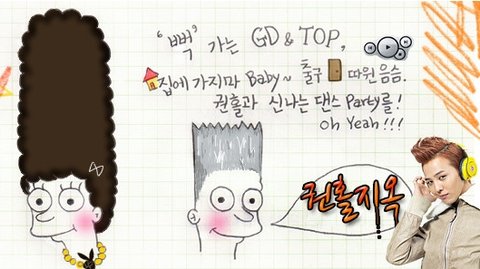 '뻑' 가는 GD & TOP,
집에 가지마 Baby~ 출구 따윈 음슴.
권홀과 신나는 댄스 Party를!
Oh Yeah!!!
권홀지옥!